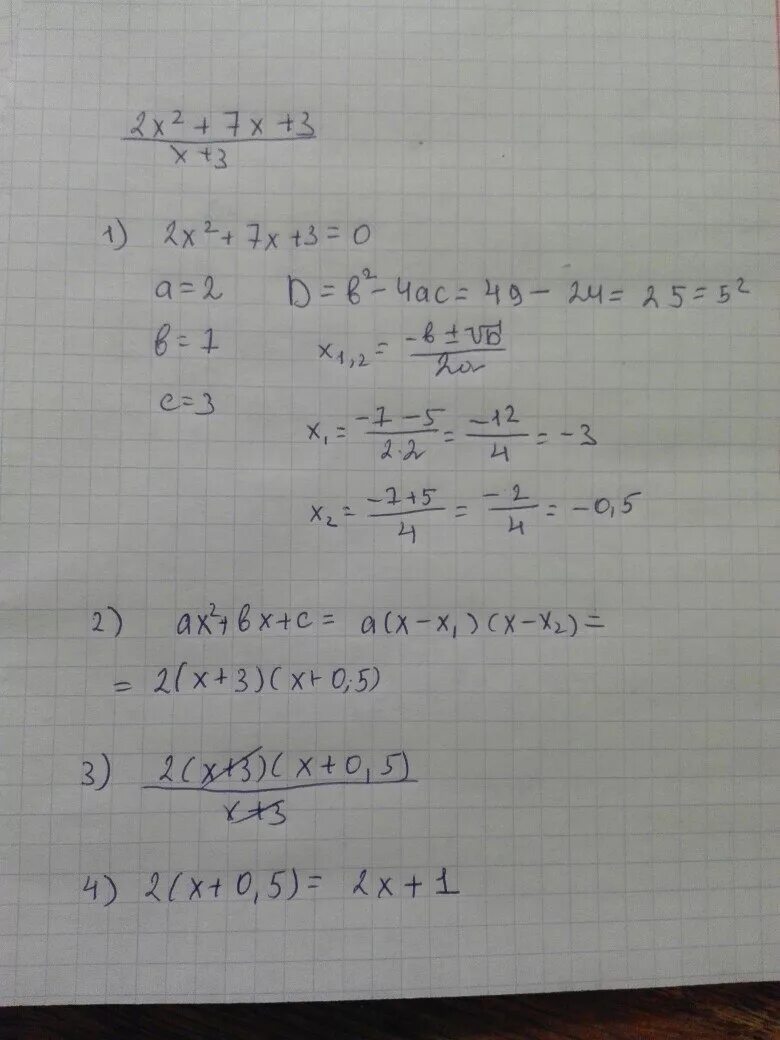 2x² + 7x + 3
x + 3
1) 2x² + 7x + 3 = 0
a = 2 D = в² - 4ac = 49 - 24 = 25 = 5²
в = 7 x₁,₂ = (-в ± √D) / 2a
c = 3
x₁ = (-7 - 5) / (2·2) = -12/4 = -3
x₂ = (-7 + 5) / 4 = -2/4 = -0,5
2) ax² + вx + c = a(x - x₁)(x - x₂) =
= 2(x + 3)(x + 0,5)
3) 2(x + 3)(x + 0,5)
x + 3
4) 2(x + 0,5) = 2x + 1